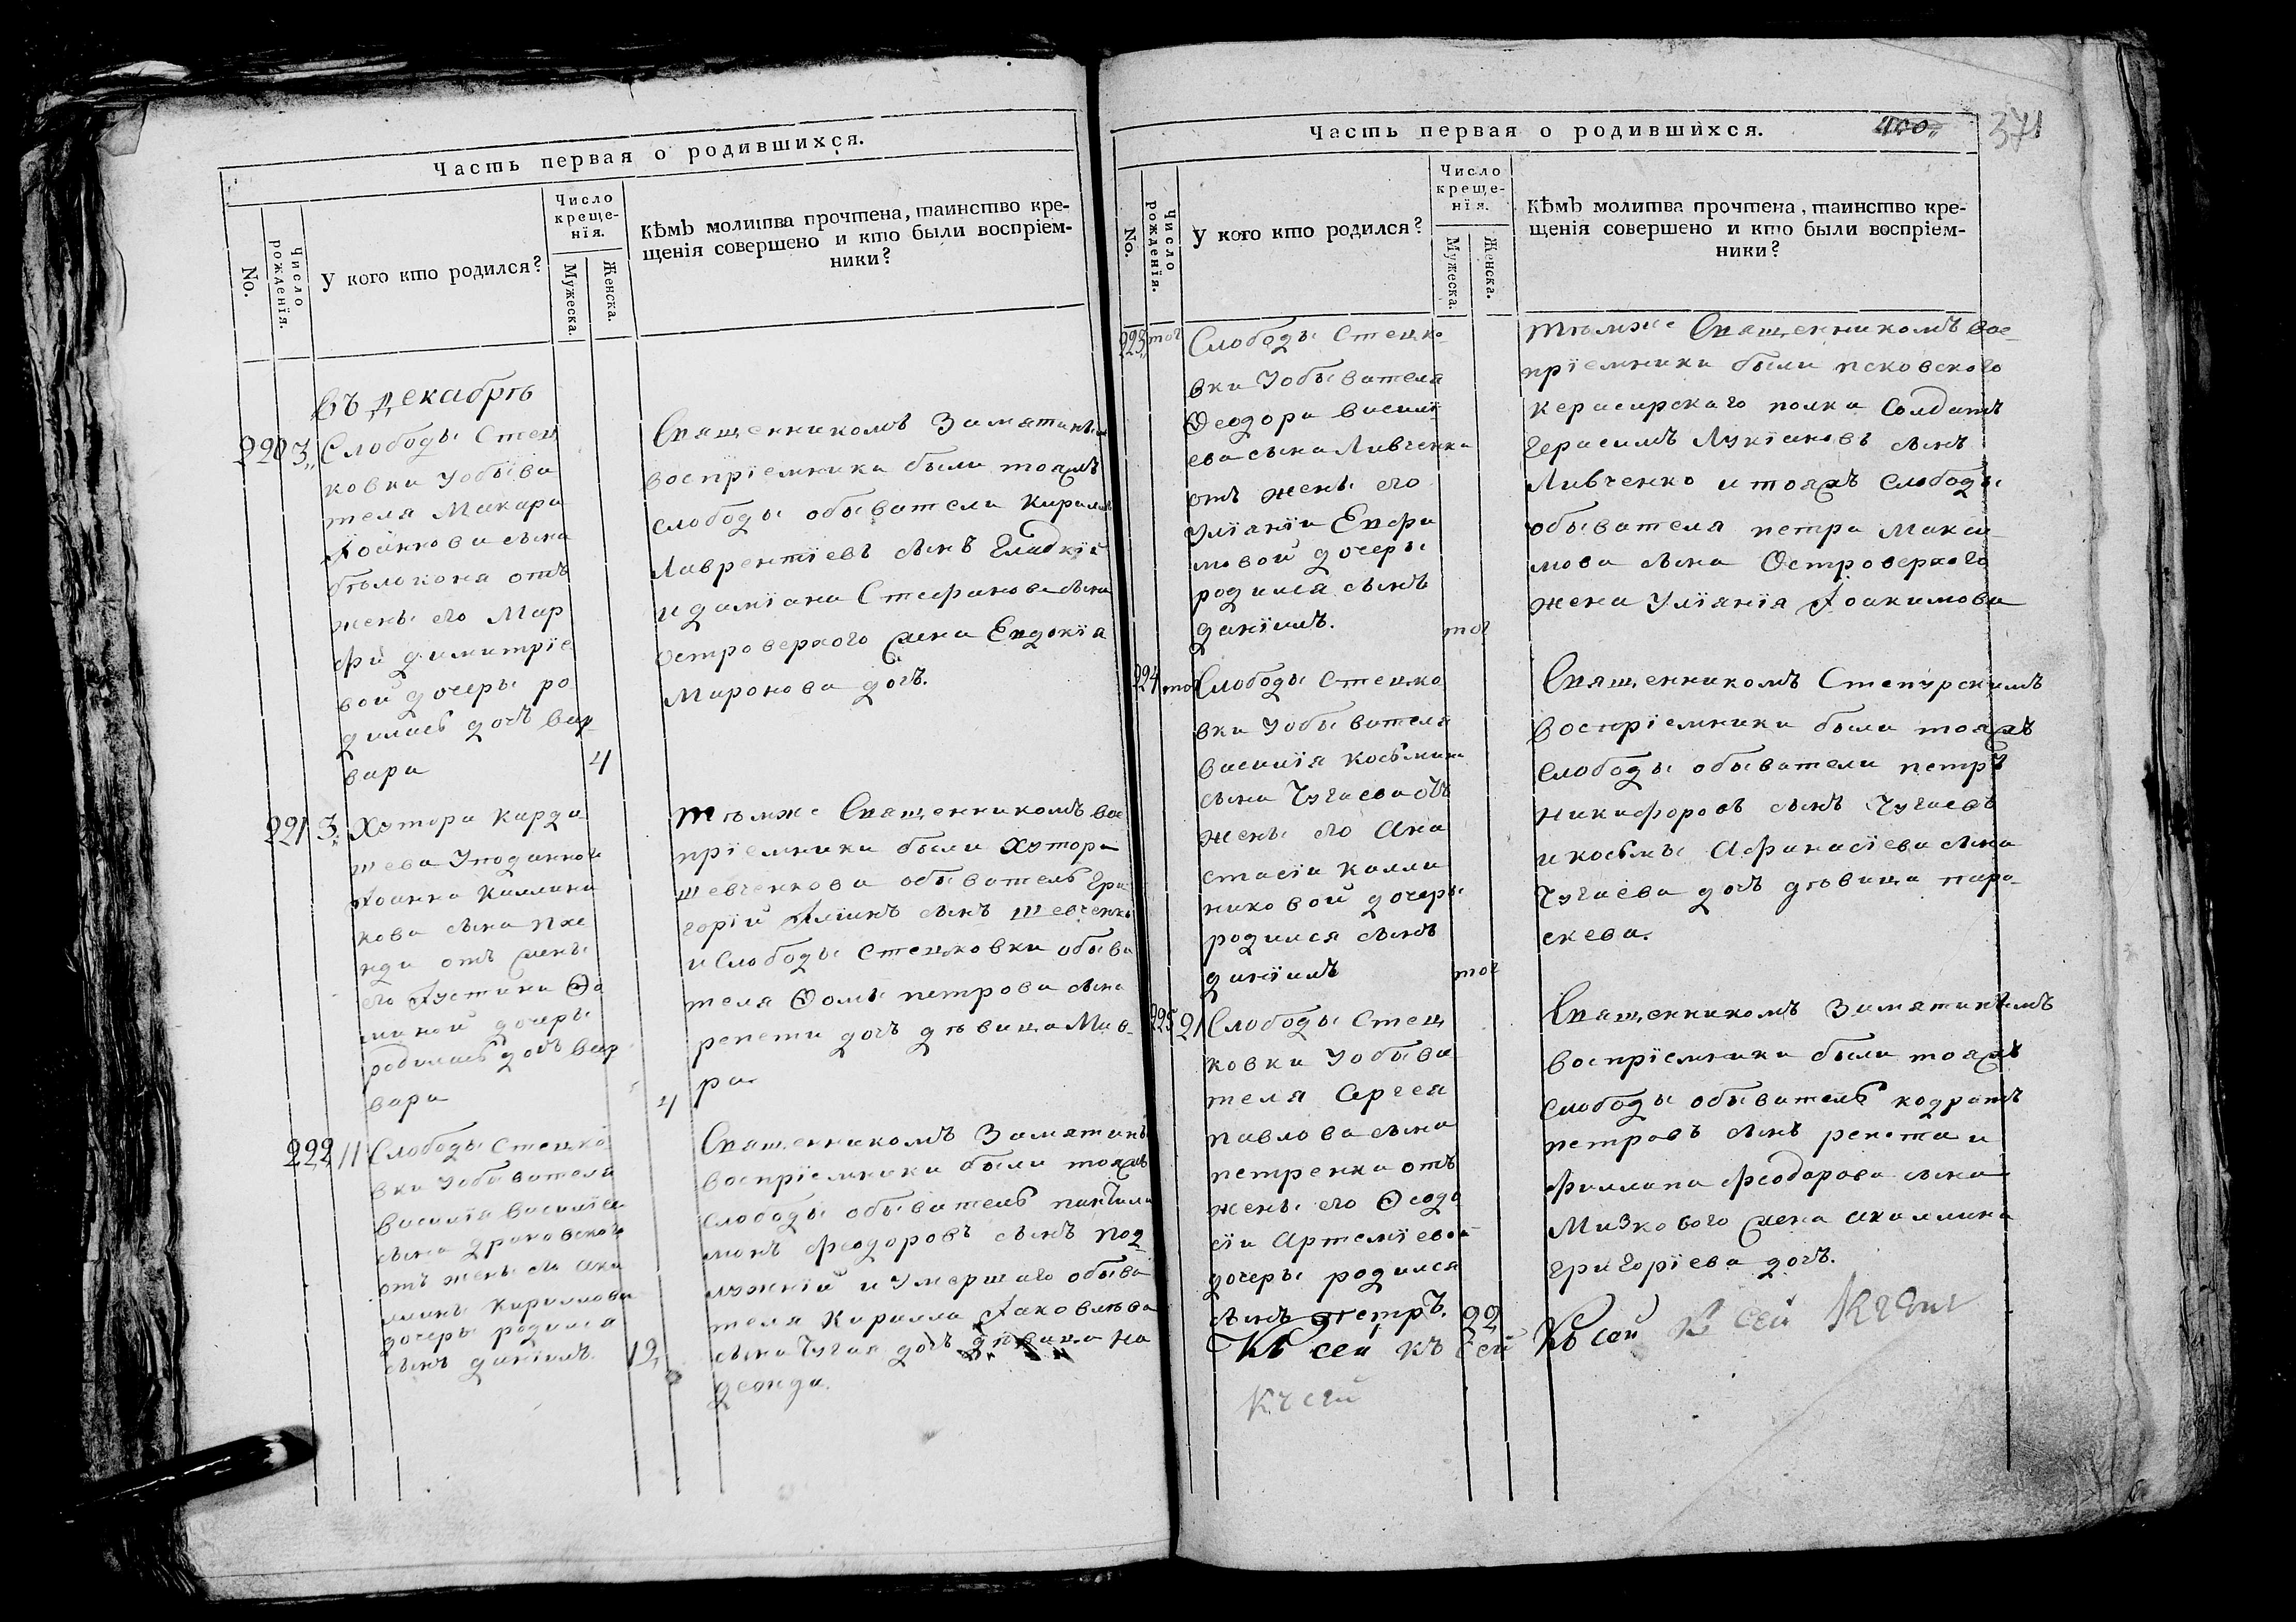 Часть первая о родившихся.
No.
Число рожденїя.
У кого кто родился?
Число
креще-
нїя.
Мужеска.
Женска.
Кѣмъ молитва прочтена, таинство кре-
щенія совершено и кто были воспріем-
ники?
въ декабрѣ
220 3 Слободы Стец
ковки Уобыва
теля Макара
Іоаннова сына
бѣлоконя отъ
жены его Мар
фы димитріе
вой дочеры ро
дилась дочь вар
вара
4
Священникомъ Замятинымъ
воспріемники были тояжъ
слободы обыватели Кирилъ
Лаврентіевъ сынъ Гладкій
и даміана Стефанова сына
Островерхого жена Евдокія
Миронова дочь.
221 3 Хутора Карда
шева Уподанного
Іоанна Каллини
кова сына
отъ жены
его Іустины Ѳо
миной дочеры
родилась дочь вар
вара
4
тѣмже Священникомъ вос
пріемники были Хутора
шевченкова обыватель Гри
горій Иліинъ сынъ шевченко
и Слободы Стецковки обыва
теля Ѳомы петрова сына
репети дочь дѣвица Мав-
ра
222 11 Слободы Стецко
вки Уобывателя
василія василіева
сына драновского
отъ жены его аки
лины Кириллова
дочеры родился
сынъ даніилъ.
12
Священникомъ Замятинъ
воспріемники были тояжъ
слободы обыватель пантили
монъ феодоровъ сынъ под
лужній и умершаго обыва
теля Кирилла Іаковлѣва
сына Чугая дочь дѣвица на
дежда.
Часть первая о родившихся.
400
371
No.
Число рожденїя.
У кого кто родился?
Число
креще-
нїя.
Мужеска.
Женска.
Кѣмъ молитва прочтена, таинство кре-
щенія совершено и кто были воспріем-
ники?
223 тог Слободы Стецко-
вки Уобывателя
Ѳеодора Васил
ева сына Ливченка
отъ жены его
Уліаніи Евфи
мовой дочеры
родился сынъ
даніилъ.
тог
тѣмже Священникомъ вос-
пріемники были псковского
керасирскаго полка Солдатъ
Герасимъ Лукіановъ сынъ
Ливченко и тояжъ Слободы
обывателя петра Макси-
мова сына Островерхого
жена Уліянія Іоакимова
224 тог Слободы Стецко
вки Уобывателя
василія косьмина
сына Чугаева отъ
жены его Ана
стасіи калли
никовой дочеры
родился сынъ
даніилъ
тог
Священникомъ Степурскимъ
воспріемники были тояжъ
Слободы обыватели петръ
никифоровъ сынъ Чугаевъ
и косьмы Афанасіева сына
Чугаева дочь дѣвица пара-
скева.
225 21 Слободы Стец
ковки Уобыва
теля Сергея
павлова сына
петренка отъ
жены его Ѳеодо
сіи Артеміевой
дочеры родился
сынъ петръ.
22
Священникомъ Замятинымъ
воспріемники были тояжъ
слободы обыватель кодратъ
петровъ сынъ репета и
филлипа феодорова сына
Мизкового жена акиллина
григоріева дочь.
Къ сей къ Сей Къ сей К сей
Къ сей